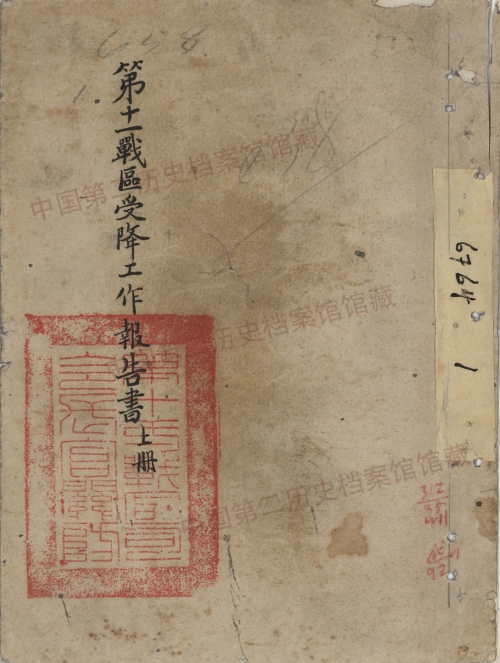 第十一戰區受降工作報告書上册
中国第二历史档案馆馆藏
中国第二历史档案馆馆藏
中国第二历史档案馆馆藏
第十一戰區司
令長官部
6764
1